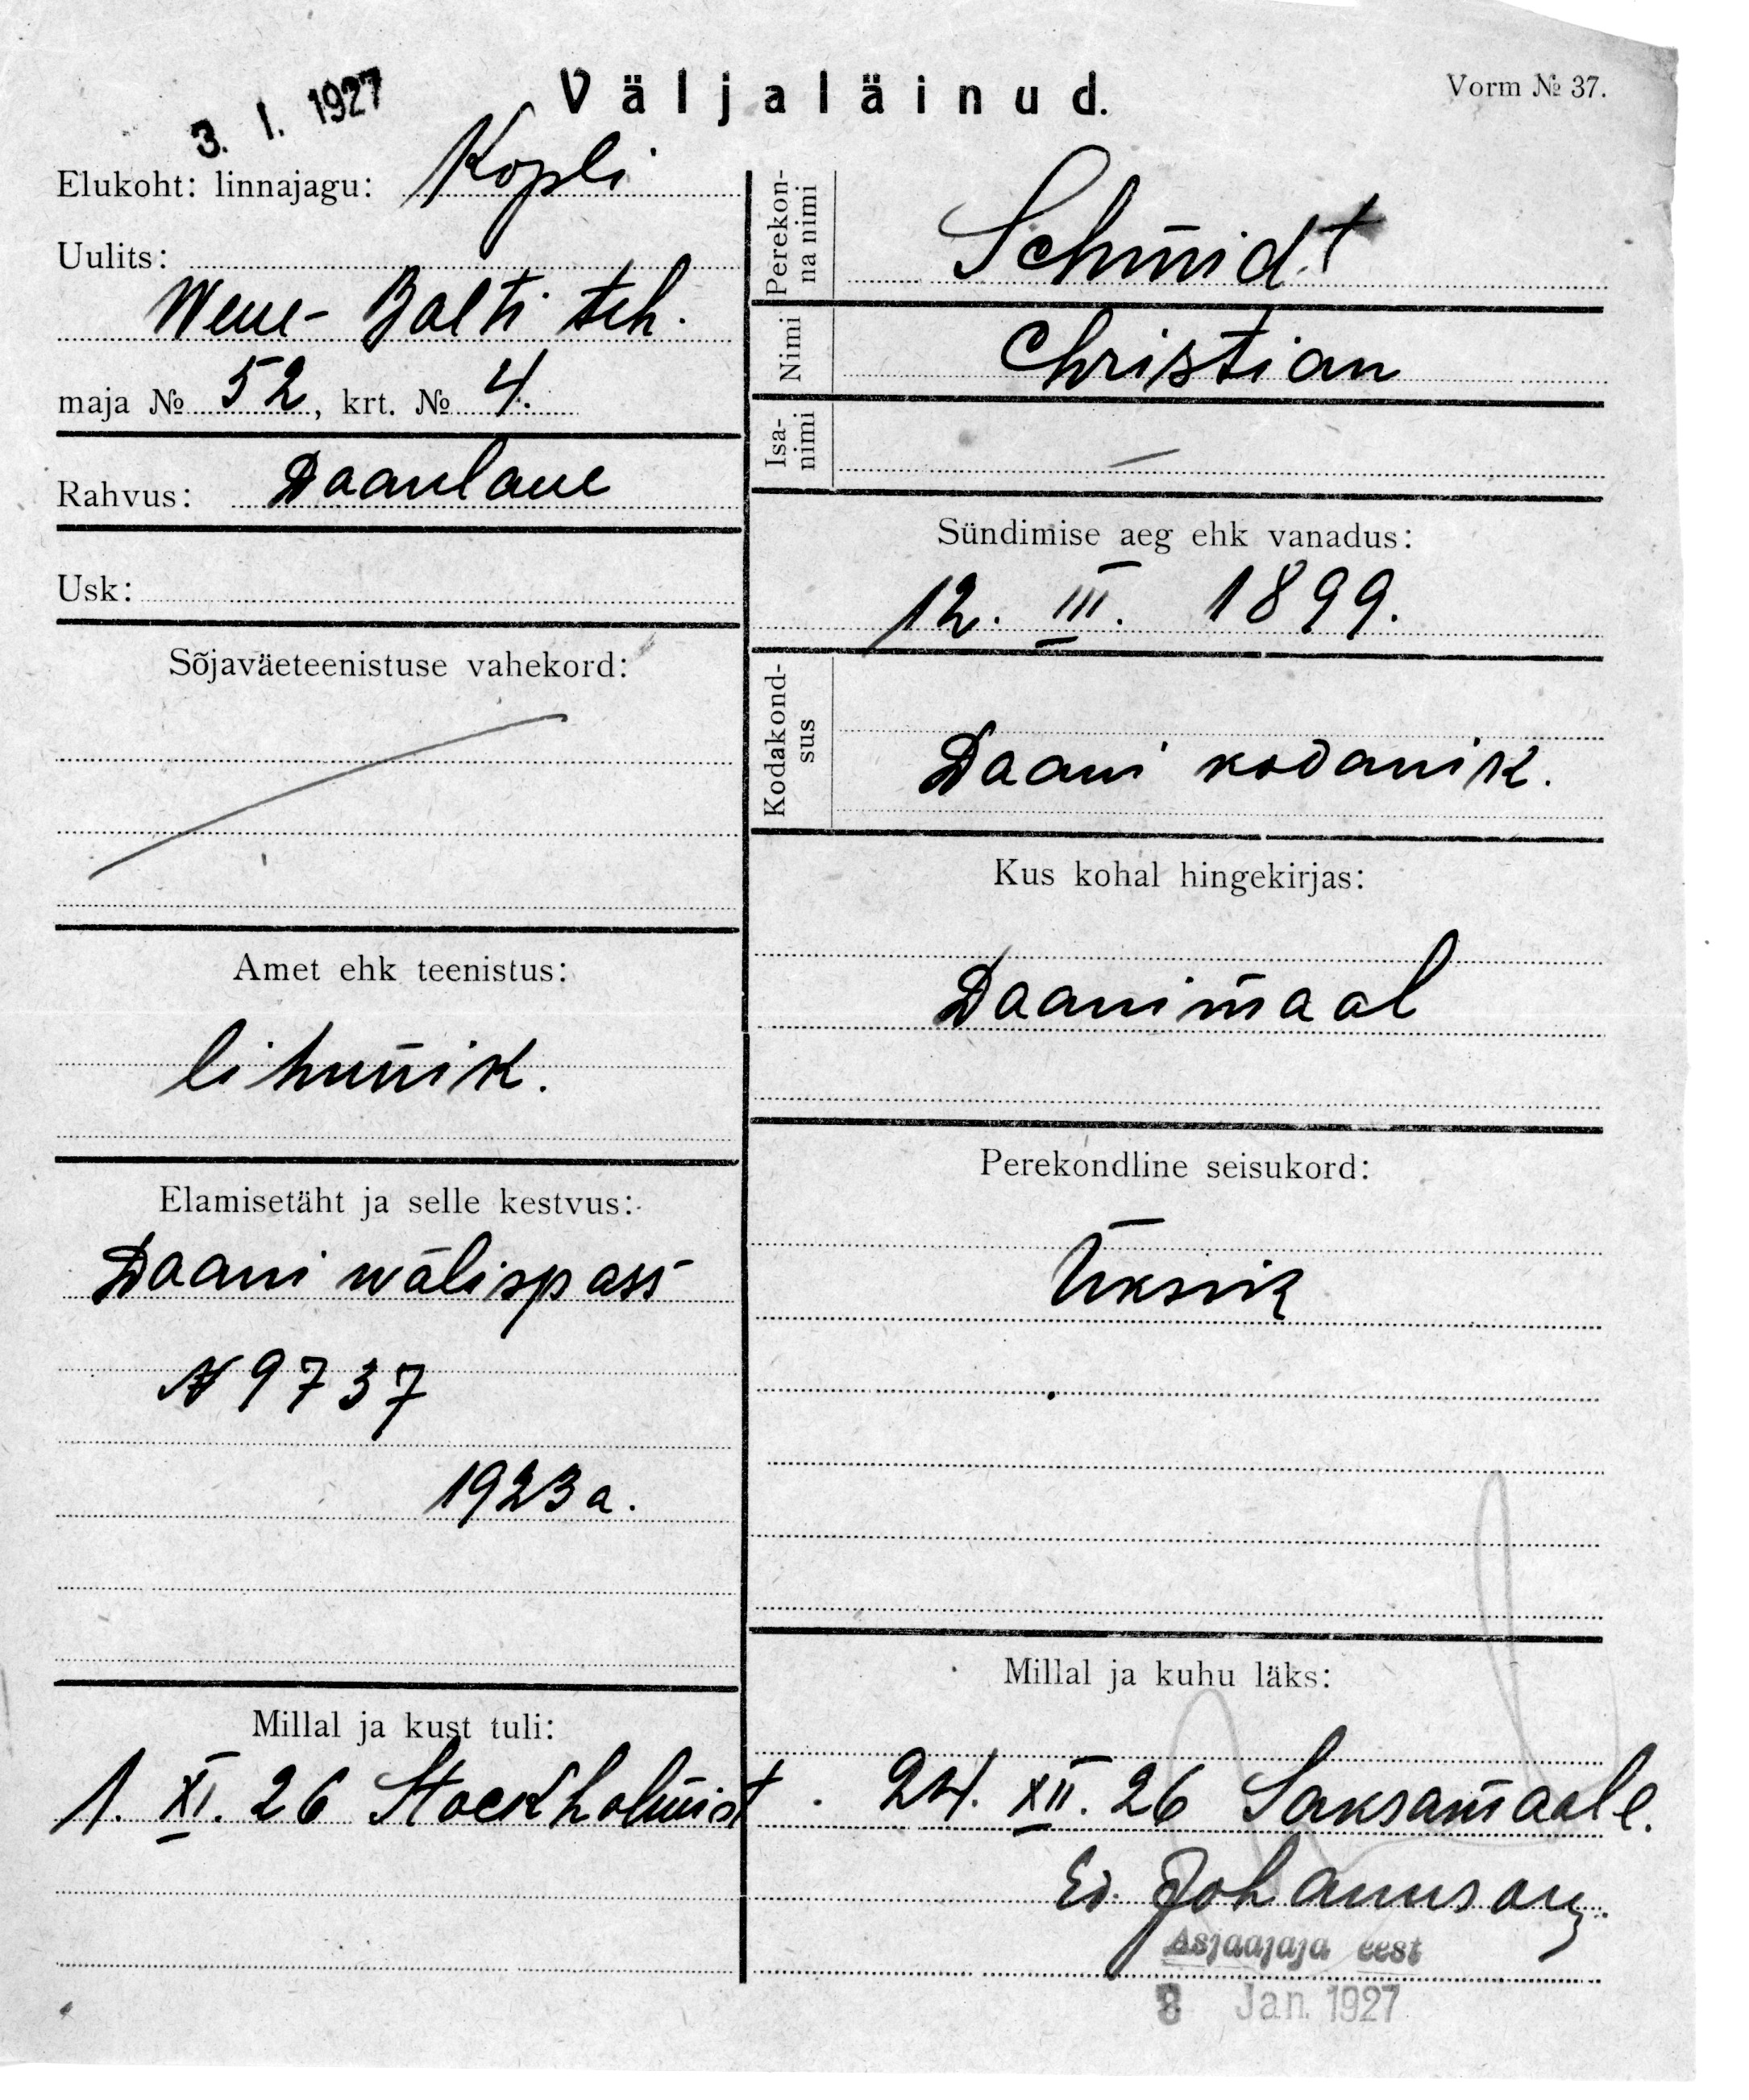 Väljaläinud.
Vorm № 37.
3. I. 1927
Elukoht: linnajagu: Kopli
Uulits:
Wene-Balti teh.
maja № 52, krt. № 4.
Rahvus: Daanlane
Usk:
Sõjaväeteenistuse vahekord:
Amet ehk teenistus:
lihunik.
Elamisetäht ja selle kestvus:
Daani wälispass
N 9737
1923 a.
Millal ja kust tuli:
1. XI. 26 Stockholmist
Perekon-
na nimi
Schmidt
Nimi
Christian
Isa-
nimi
—
Sündimise aeg ehk vanadus:
12. III. 1899.
Kodakond-
sus
Daani kodanik.
Kus kohal hingekirjas:
Daanimaal
Perekondline seisukord:
Üksik
Millal ja kuhu läks:
24. XII. 26 Saksamaale.
Ed. Johannson
Asjaajaja eest
Jan. 1927